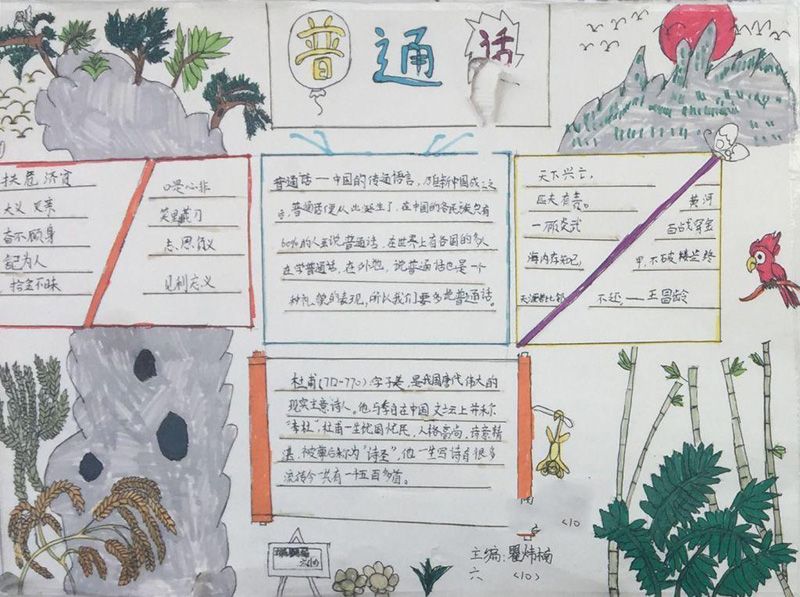 普通话
扶危济贫
大义灭亲
奋不顾身
舍己为人
拾金不昧
口是心非
笑里藏刀
忘恩负义
见利忘义
普通话——中国的传通语言,
普通话便从此诞生了,在中国的各民族大有
60%的人会说普通话,在世界上有各国的多人
在学普通话,在外地,说普通话也是一个
种礼貌的表现,所以我们要多说普通话。
天下兴亡,
匹夫有责。
海内存知己,
天涯若比邻
黄河
百战穿金
甲,不破楼兰终
不还,——王昌龄
杜甫(712-770)字子美,是我国唐代伟大的
现实主意诗人。他与李白在中国文坛上并称
"李杜",杜甫一生忧国忧民,人格高尚,诗意精
湛,被后称为"诗圣",他一生写诗有很多
流传今共有一千五百多首。
<10
主编:瞿炜楠
六 <10>